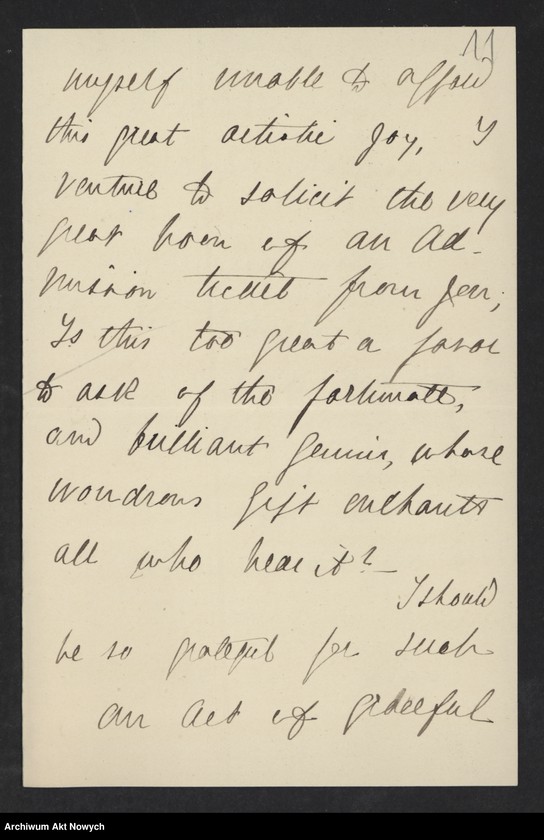 11
myself unable to afford
this great artistic joy, I
venture to solicit the very
great boon of an Ad-
mission ticket from you;
Is this too great a favor
to ask of the fortunate,
and brilliant genius, whose
wondrous gift enchants
all who hear it? –
I should
be so grateful for such
an act of graceful
Archiwum Akt Nowych